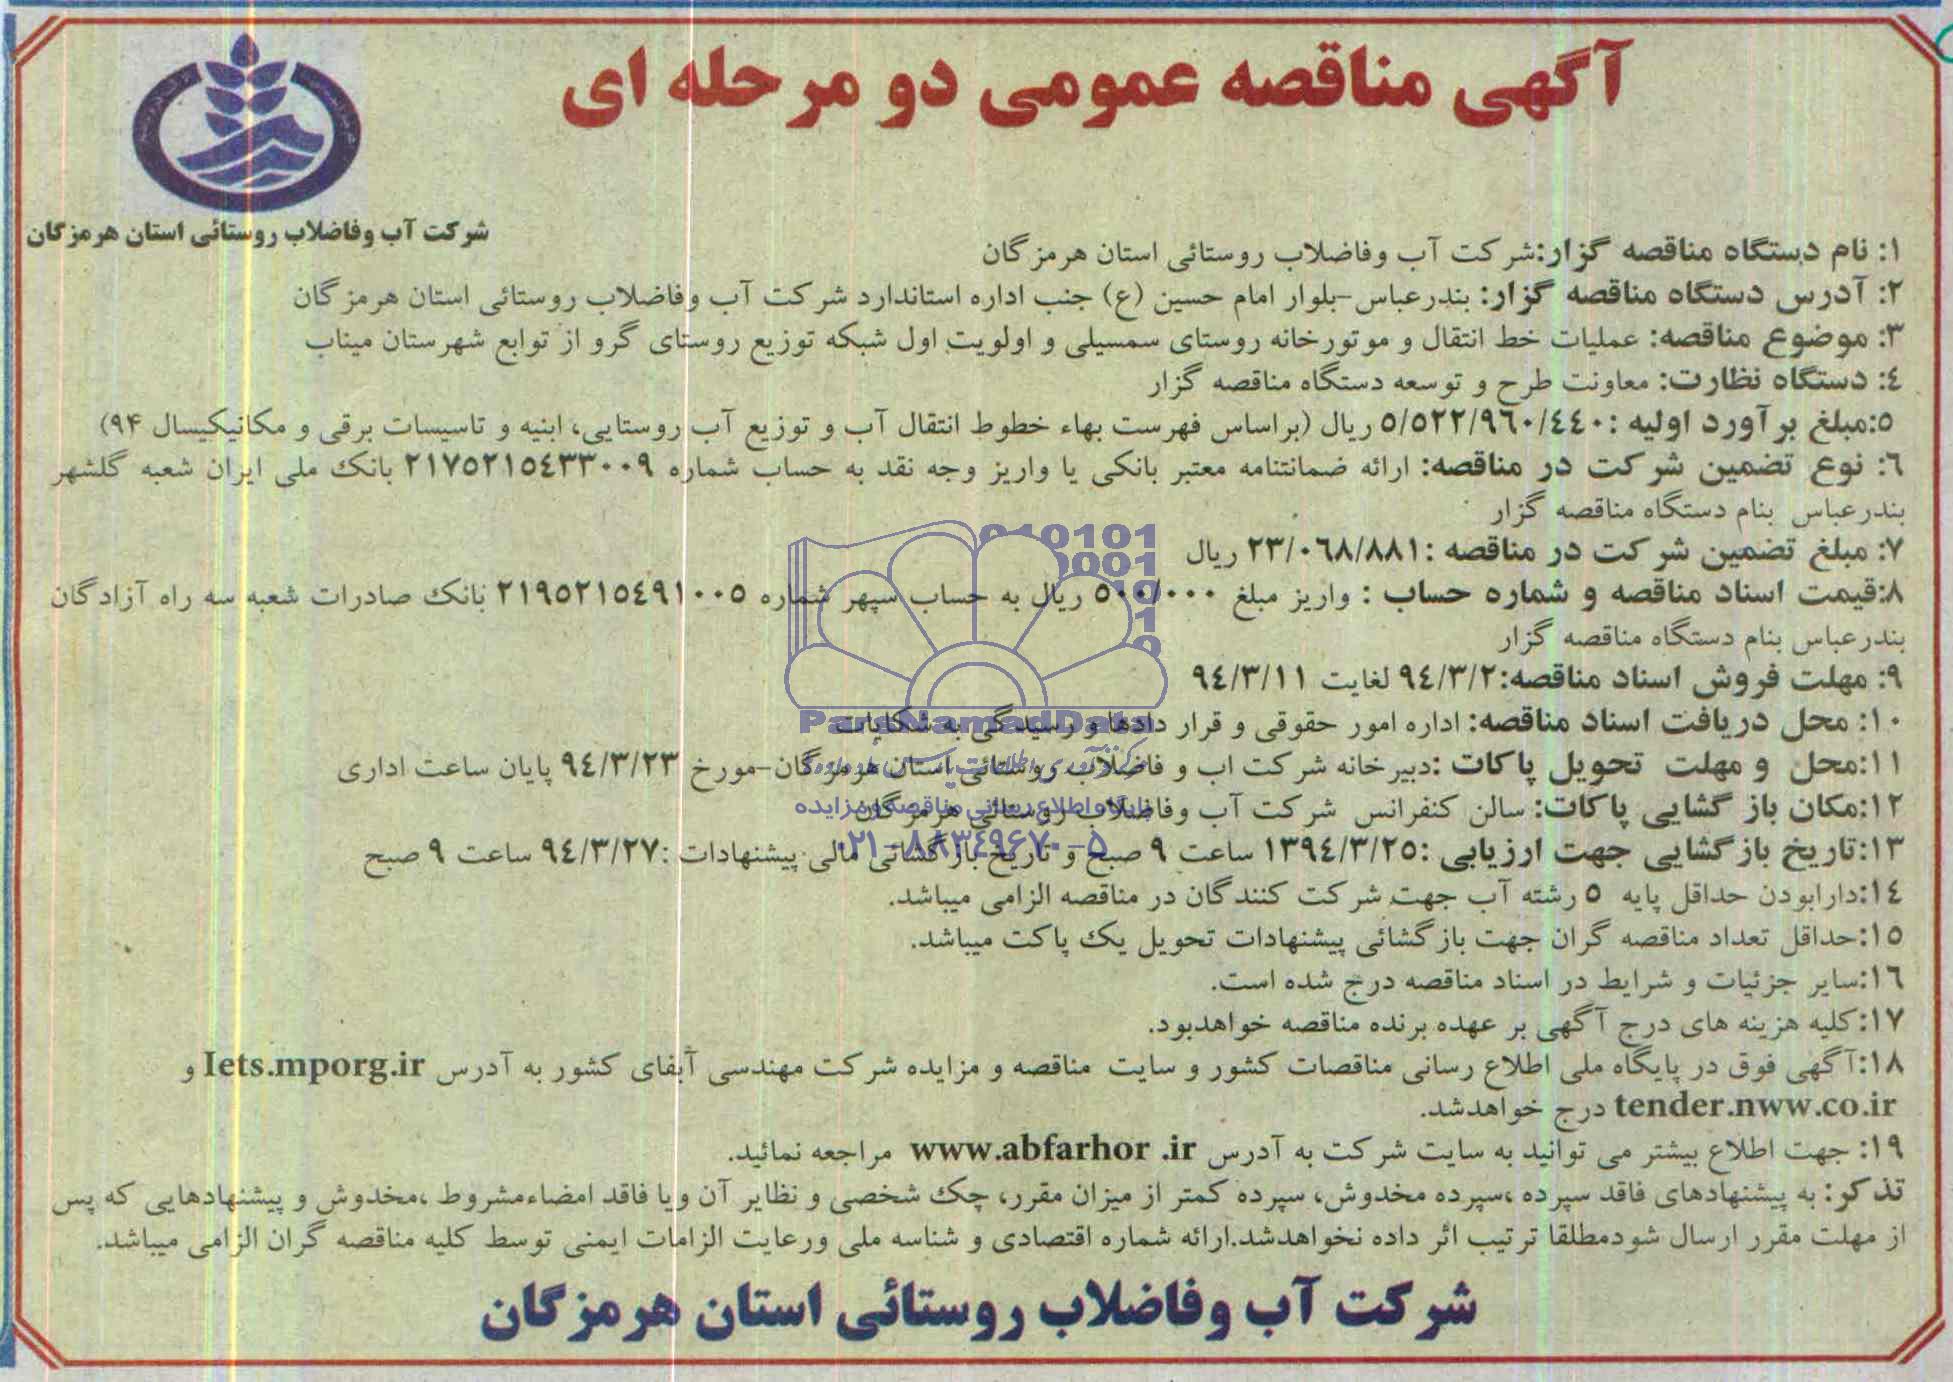 آگهی مناقصه عمومی دو مرحله ای
شرکت آب وفاضلاب روستائی استان هرمزگان
۱: نام دستگاه مناقصه گزار:شرکت آب وفاضلاب روستائی استان هرمزگان
۲: آدرس دستگاه مناقصه گزار: بندرعباس-بلوار امام حسین (ع) جنب اداره استاندارد شرکت آب وفاضلاب روستائی استان هرمزگان
۳: موضوع مناقصه: عملیات خط انتقال و موتورخانه روستای سمسیلی و اولویت اول شبکه توزیع روستای گرو از توابع شهرستان میناب
٤: دستگاه نظارت: معاونت طرح و توسعه دستگاه مناقصه گزار
٥:مبلغ برآورد اولیه :٥/٥٢٢/٩٦٠/٤٤٠ ریال (براساس فهرست بهاء خطوط انتقال آب و توزیع آب روستایی، ابنیه و تاسیسات برقی و مکانیکیسال ۹۴)
٦: نوع تضمین شرکت در مناقصه: ارائه ضمانتنامه معتبر بانکی یا واریز وجه نقد به حساب شماره ٢١٧٥٢١٥٤٣٣٠٠٩ بانک ملی ایران شعبه گلشهر
بندرعباس بنام دستگاه مناقصه گزار
۷: مبلغ تضمین شرکت در مناقصه :٢٣/٠٦٨/٨٨١ ریال
۸:قیمت اسناد مناقصه و شماره حساب : واریز مبلغ ٥٠٠/٠٠٠ ریال به حساب سپهر شماره ٢١٩٥٢١٥٤٩١٠٠٥ بانک صادرات شعبه سه راه آزادگان
بندرعباس بنام دستگاه مناقصه گزار
۹: مهلت فروش اسناد مناقصه:٩٤/٣/٢ لغایت ٩٤/٣/١١
۱۰: محل دریافت اسناد مناقصه: اداره امور حقوقی و قرار دادها و رسیدگی به شکایات
۱۱:محل و مهلت تحویل پاکات :دبیرخانه شرکت اب و فاضلاب روستائی استان هرمزگان-مورخ ٩٤/٣/٢٣ پایان ساعت اداری
۱۲:مکان باز گشایی پاکات: سالن کنفرانس شرکت آب وفاضلاب روستائی هرمزگان
۱۳:تاریخ بازگشایی جهت ارزیابی :١٣٩٤/٣/٢٥ ساعت ۹ صبح و تاریخ بازگشائی مالی پیشنهادات :٩٤/٣/٢٧ ساعت ۹ صبح
۱٤:دارابودن حداقل پایه ٥ رشته آب جهت شرکت کنندگان در مناقصه الزامی میباشد.
۱٥:حداقل تعداد مناقصه گران جهت بازگشائی پیشنهادات تحویل یک پاکت میباشد.
۱٦:سایر جزئیات و شرایط در اسناد مناقصه درج شده است.
۱۷:کلیه هزینه های درج آگهی بر عهده برنده مناقصه خواهدبود.
۱۸:آگهی فوق در پایگاه ملی اطلاع رسانی مناقصات کشور و سایت مناقصه و مزایده شرکت مهندسی آبفای کشور به آدرس Iets.mporg.ir و
tender.nww.co.ir درج خواهدشد.
۱۹: جهت اطلاع بیشتر می توانید به سایت شرکت به آدرس www.abfarhor .ir مراجعه نمائید.
تذکر: به پیشنهادهای فاقد سپرده ،سپرده مخدوش، سپرده کمتر از میزان مقرر، چک شخصی و نظایر آن ویا فاقد امضاءمشروط ،مخدوش و پیشنهادهایی که پس
از مهلت مقرر ارسال شودمطلقا ترتیب اثر داده نخواهدشد.ارائه شماره اقتصادی و شناسه ملی ورعایت الزامات ایمنی توسط کلیه مناقصه گران الزامی میباشد.
شرکت آب وفاضلاب روستائی استان هرمزگان
ParsNamadData
پایگاه اطلاع رسانی مناقصه و مزایده
۰۲۱-۸۸۳٤۹٦۷۰-۵